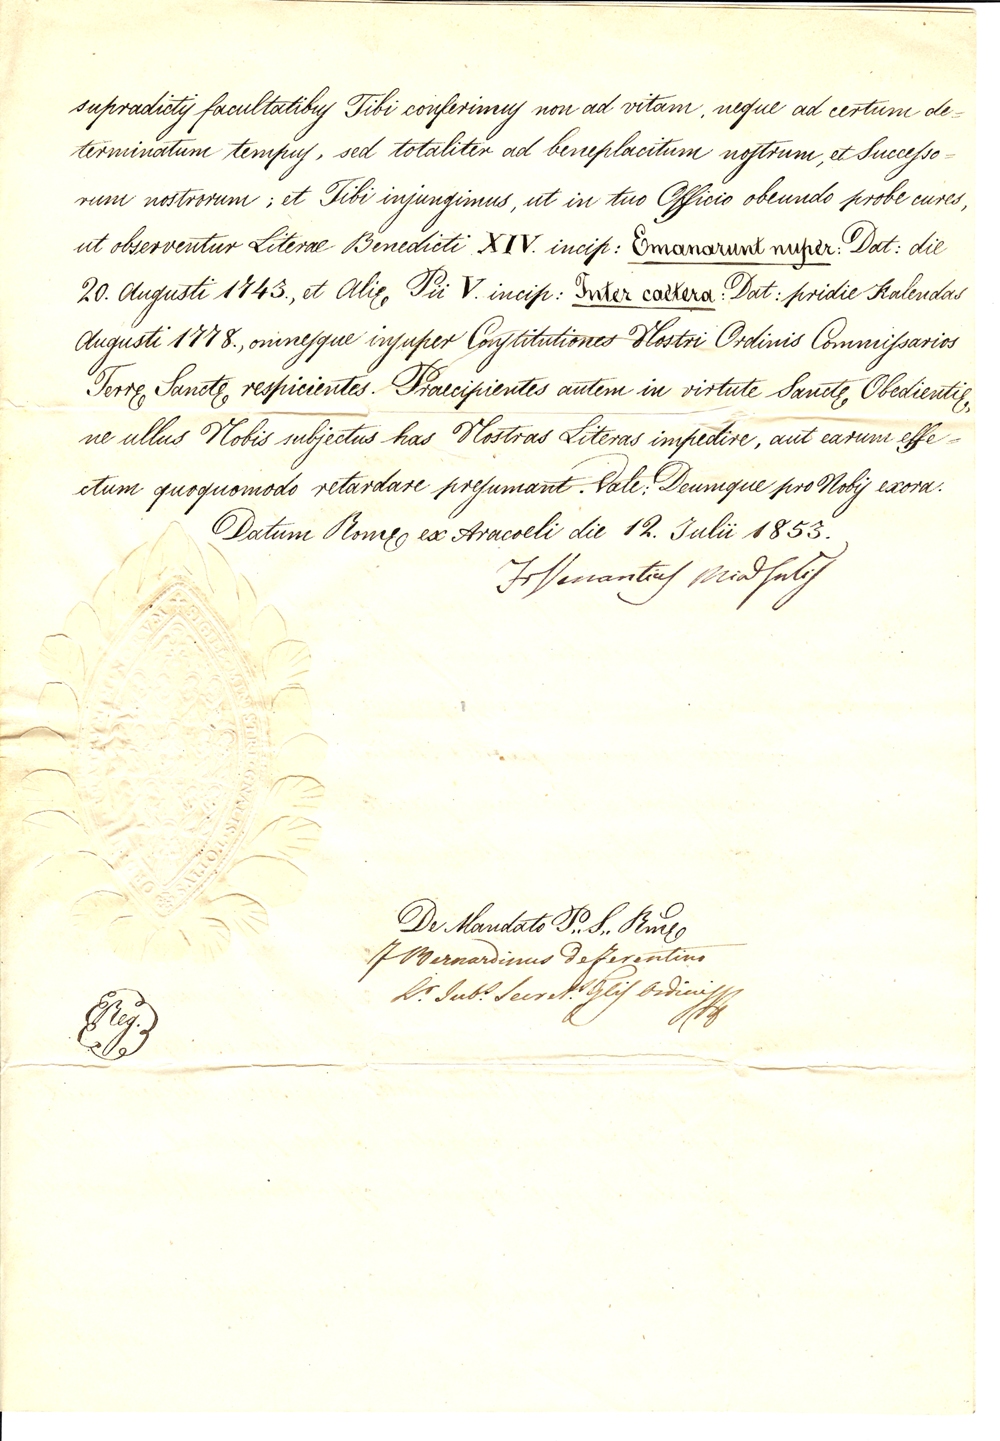 supradictis facultatibus Tibi conferimus non ad vitam, neque ad certum de=
terminatum tempus, sed totaliter ad beneplacitum nostrum, et Successo=
rum nostrorum; et Tibi injungimus, ut in tuo Officio obeundo probe cures,
ut observentur Literae Benedicti XIV. incip: Emanarunt nuper: Dat: die
20. Augusti 1743., et Alię Pii V. incip: Inter caetera: Dat: pridie Kalendas
Augusti 1778., omnesque insuper Constitutiones Nostri Ordinis Commissarios
Terrę Sanctę respicientes. Praecipientes autem in virtute Sanctę Obedientię,
ne ullus Nobis subjectus has Nostras Literas impedire, aut earum effe=
ctum quoquomodo retardare presumant. Vale: Deumque pro Nobis exora.
Datum Romę ex Aracoeli die 12. Julii 1853.
Fr Venantius
De Mandato P. S. Rmę
F Bernardinus de Ferentino
Ordinis
Reg.